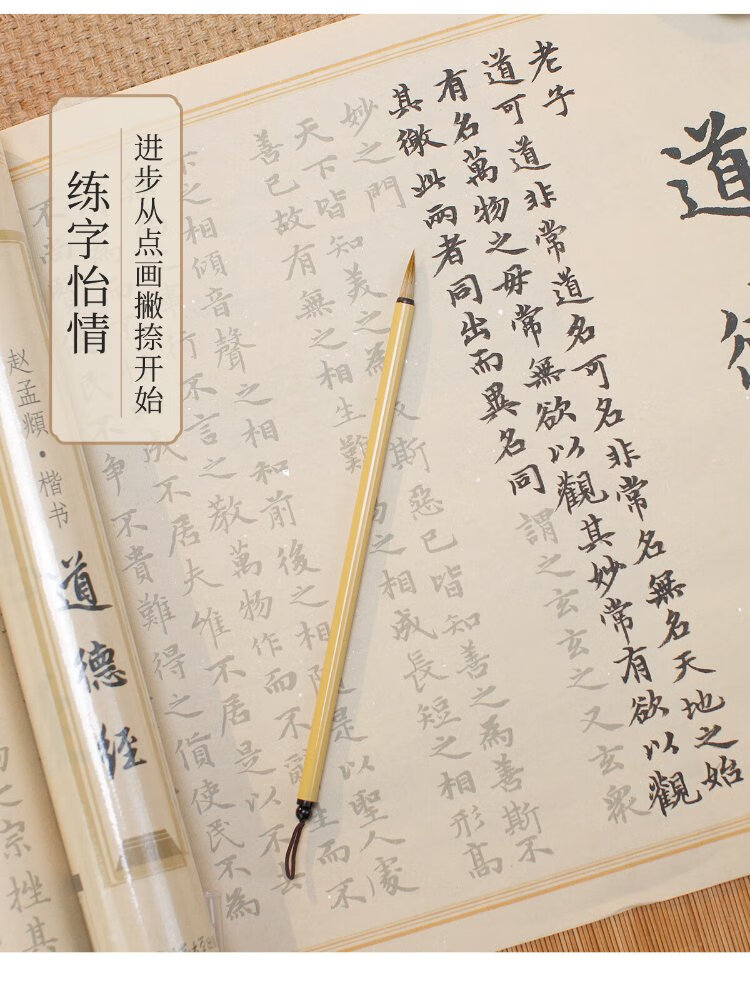 进步从点画撇捺开始
练字怡情
道
老子
道可道非常道名可名非常名無名天地之始
有名萬物之母常無欲以觀其妙常有欲以觀
其徼此兩者同出而異名同謂之玄玄之又玄衆
妙之門
天下皆知美之為斯惡已皆知善之為善斯不
善已故有無之相生難之相成長短之相形高
下之相傾音聲之相和前後之相隨是以聖人處
行不言之教萬物作而不辭生而不
成不居夫惟不居是以不去
不民不争不貴難得之貨使民不為
之宗挫其
赵孟頫·楷书
道德经